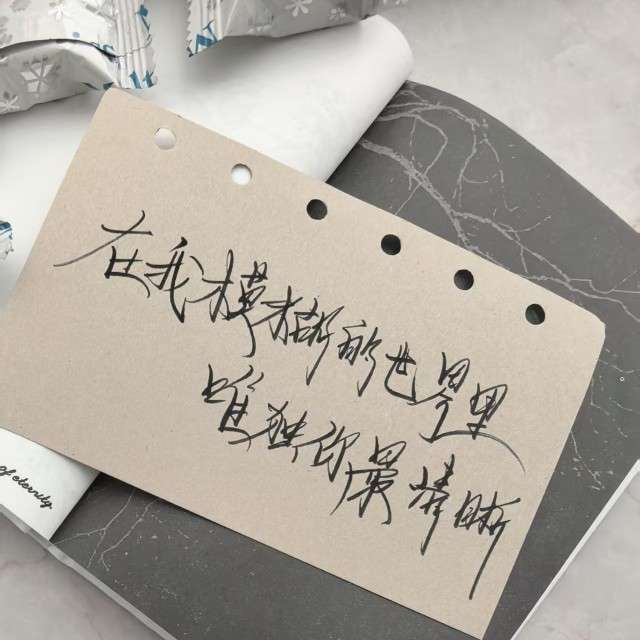 在我模糊的世界里
唯独你最清晰
of eternity